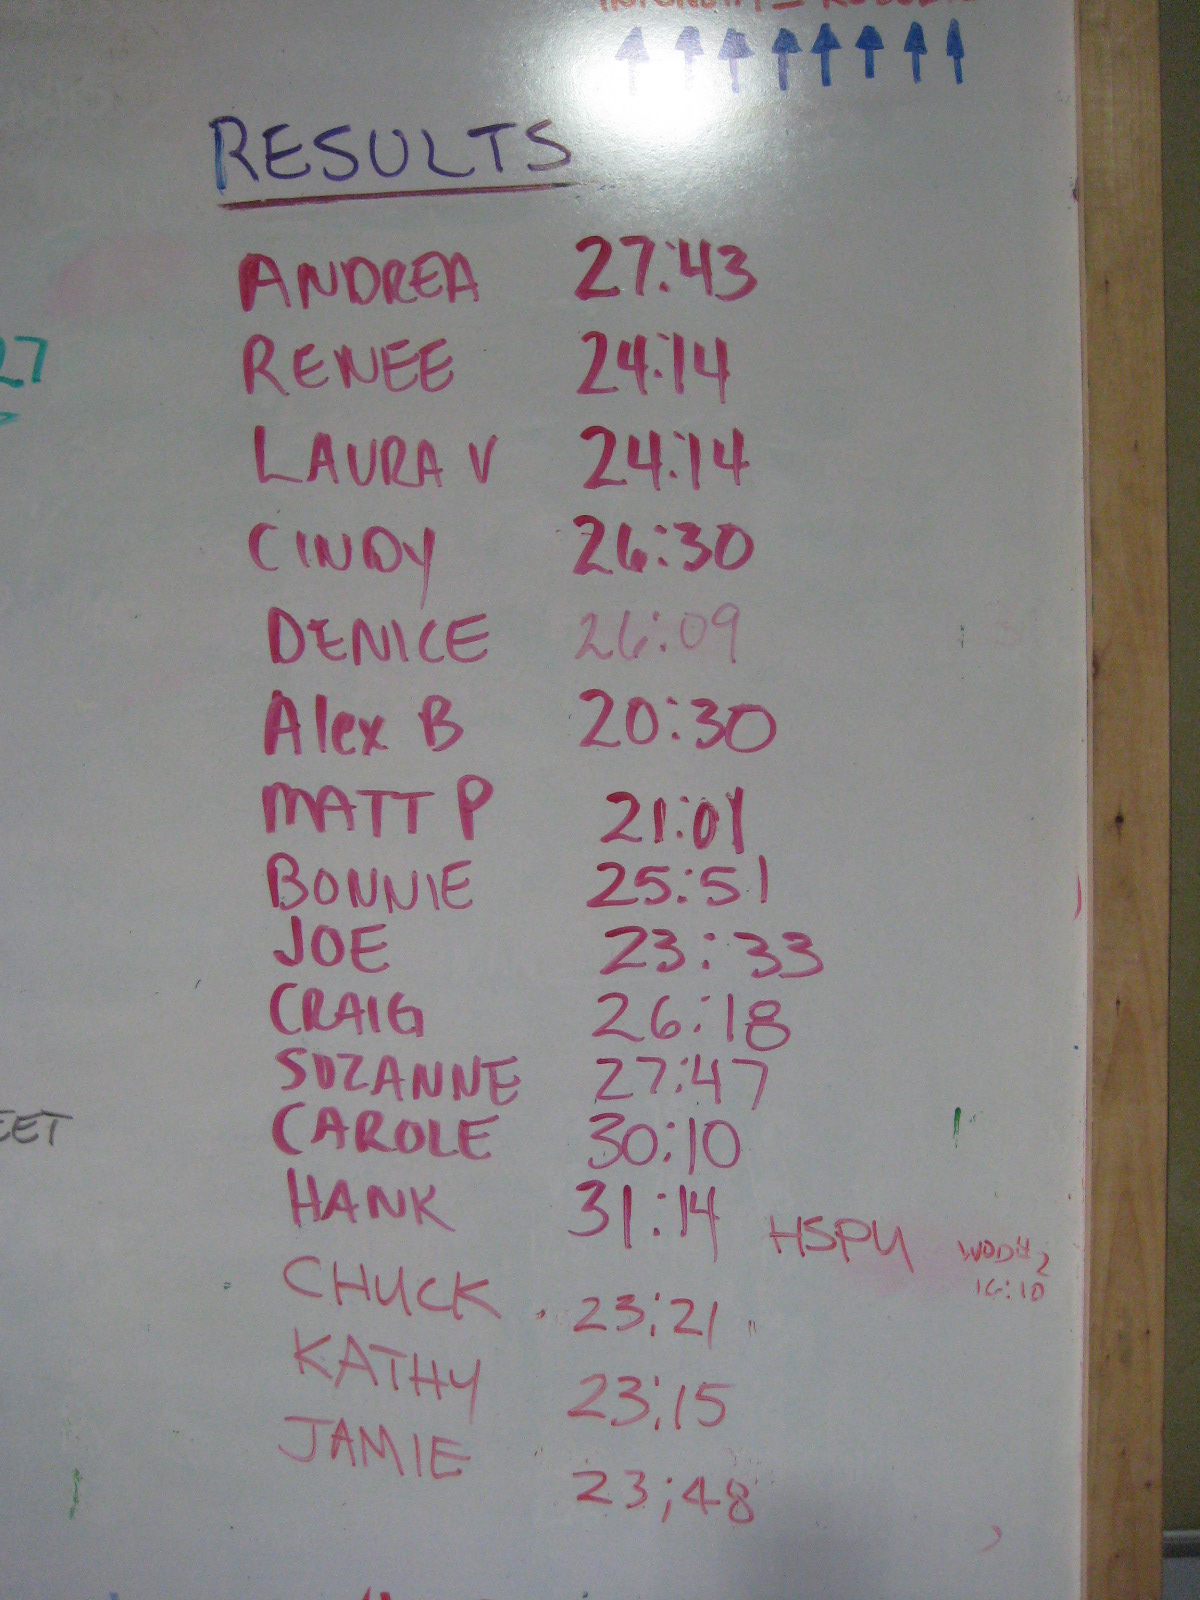 RESULTS
ANDREA 27:43
RENEE 24:14
27
LAURA V 24:14
CINDY 26:30
DENICE 26:09
Alex B 20:30
MATT P 21:01
BONNIE 25:51
JOE 23:33
CRAIG 26:18
SUZANNE 27:47
EET
CAROLE 30:10
HANK 31:14 HSPU WOD#2
16:10
CHUCK 23:21
KATHY 23:15
JAMIE 23;48